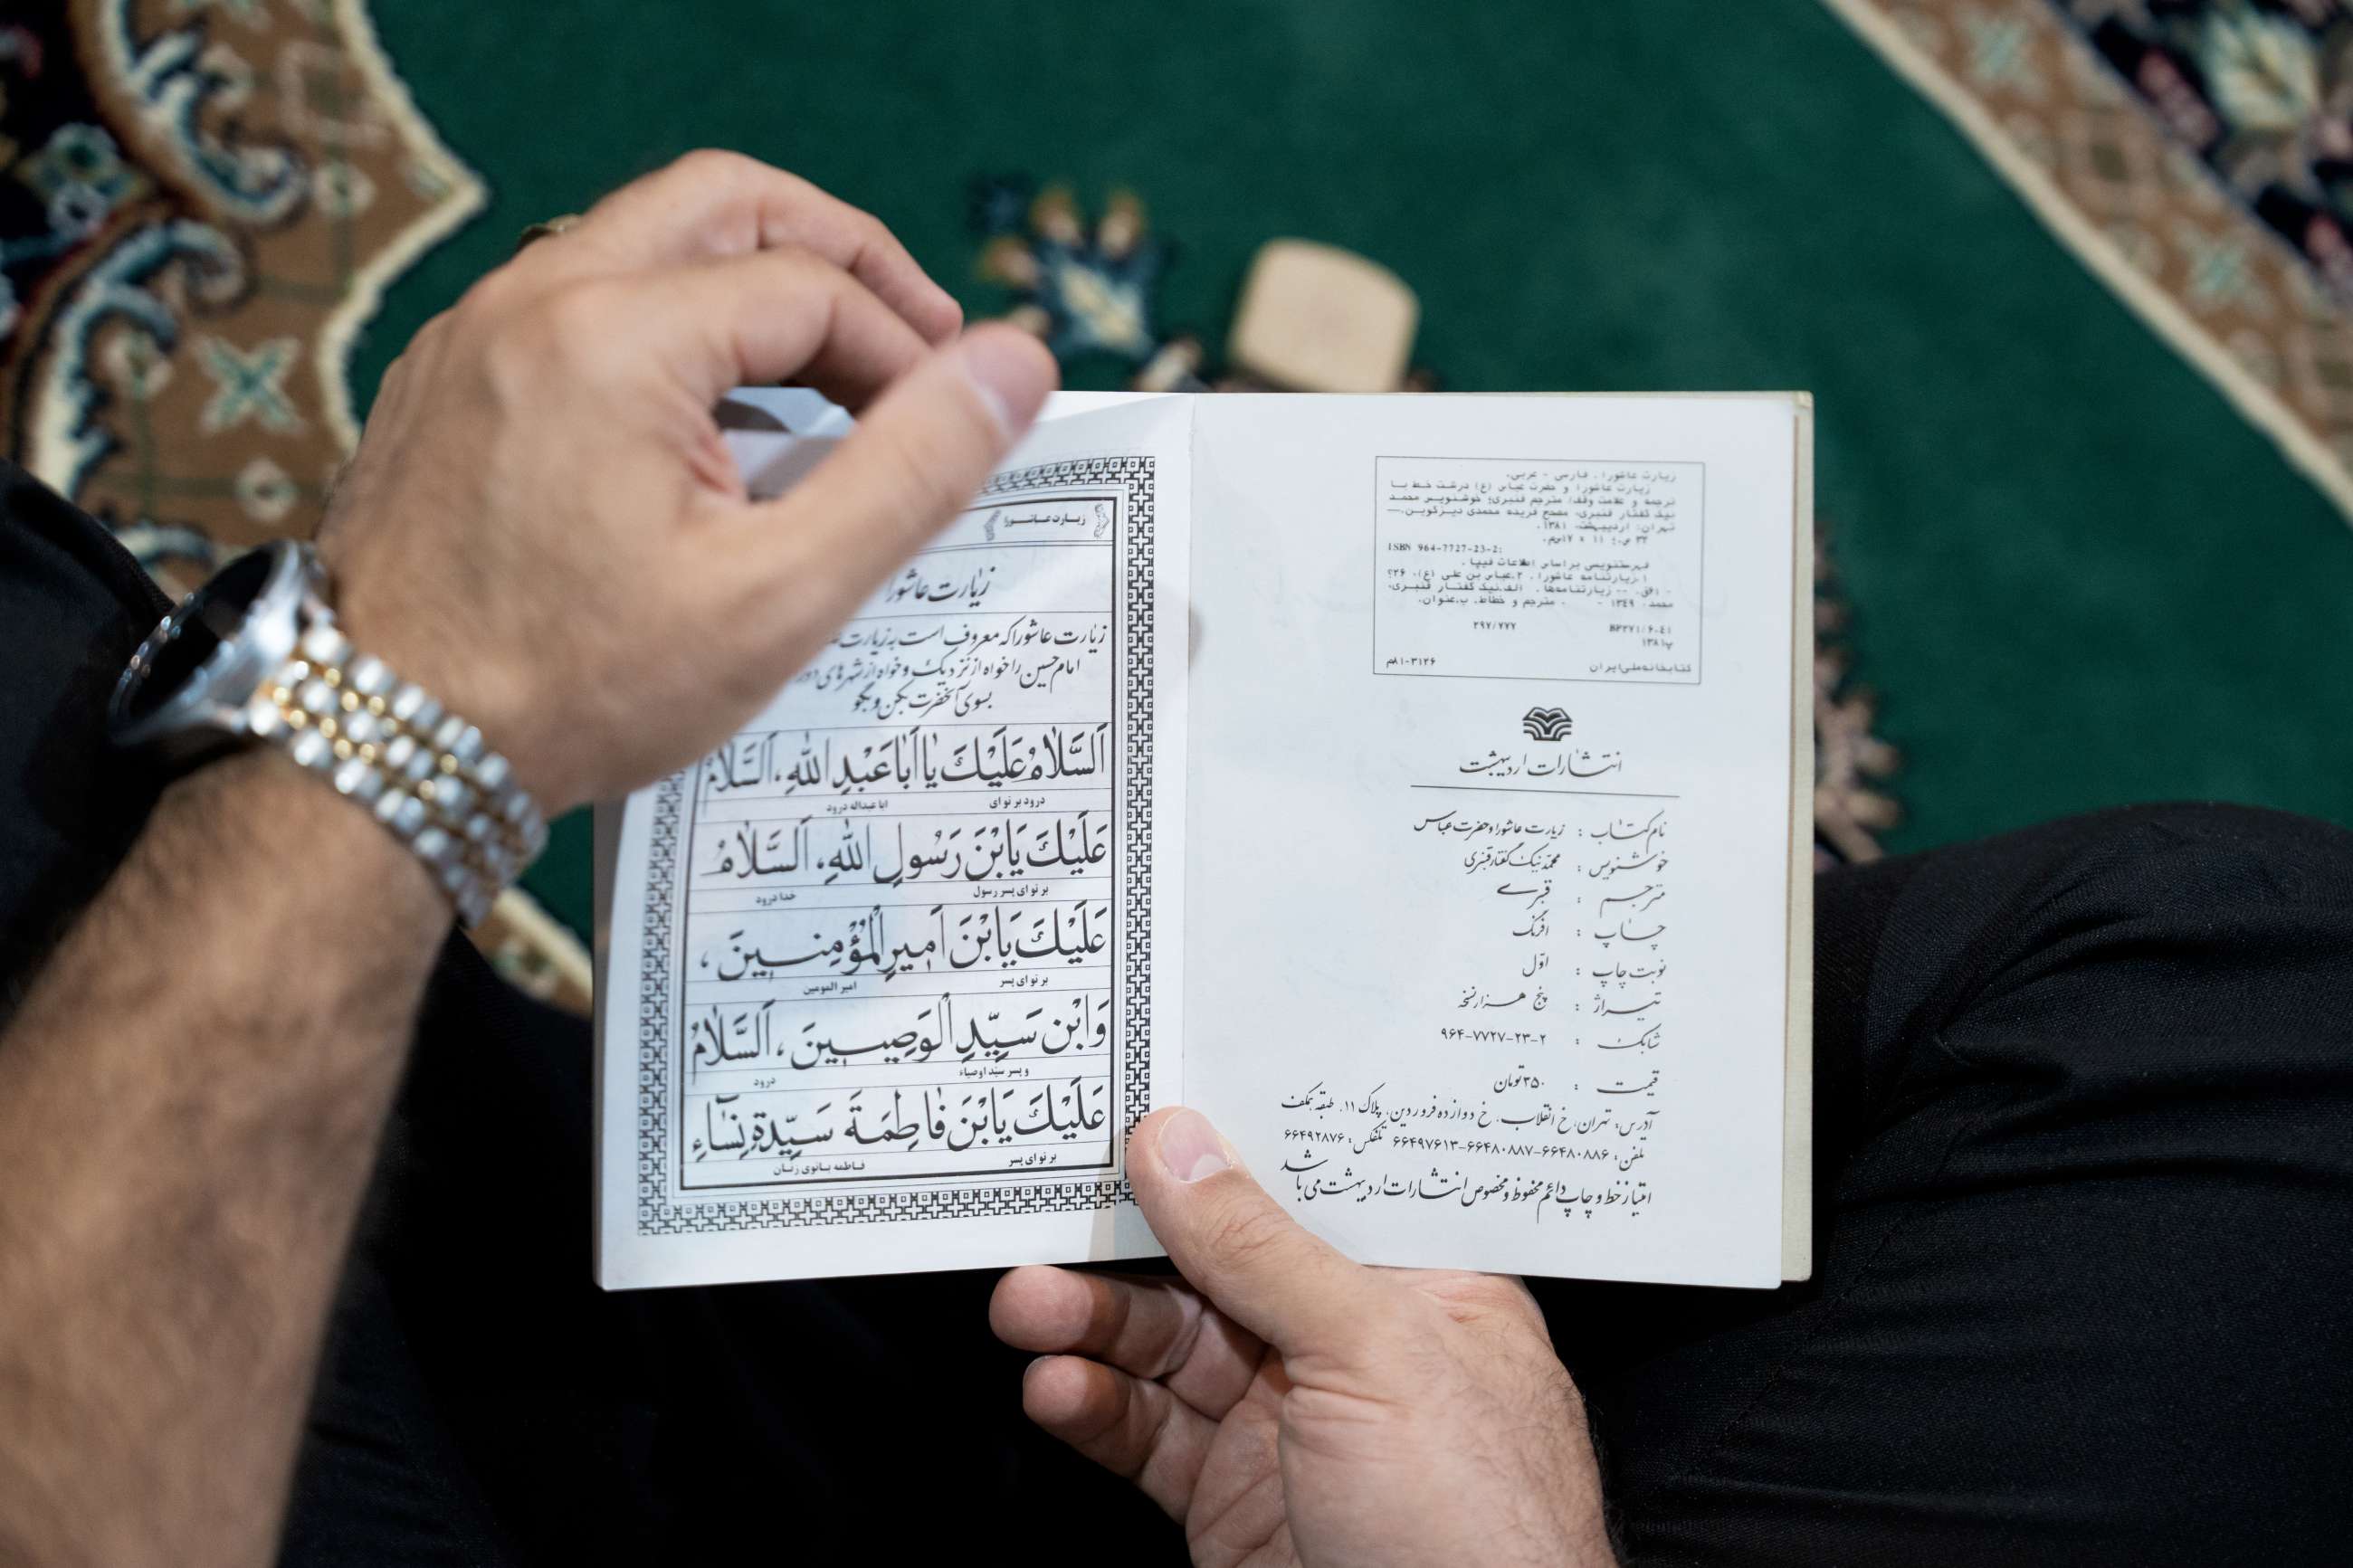 زیارت عاشورا . فارسی - عربی.
زیارت عاشورا و حضرت عباس (ع) درشت خط با
ترجمه و علامت وقف/ مترجم قنبری؛ خوشنویس محمد
نیک گفتار قنبری، مصحح فریده محمدی دیزکوین.—
تهران: اردیبهشت، ۱۳۸۱.
۳۲ ص.؛ ۱۱ × ۱۷س‌م.
ISBN 964-7727-23-2:
فهرستنویسی براساس اطلاعات فیپا .
۱.زیارتنامه عاشورا. ۲.عباس بن علی (ع)، ۲۶؟
- ۶۱ق. -- زیارتنامه‌ها. الف.نیک گفتار قنبری،
محمد، ۱۳۴۹ - . مترجم و خطاط. ب.عنوان.
۲۹۷/۷۷۷ BP۲۷۱/۶۰۴۱
پ۱۳۸۱
کتابخانه ملی ایران ۳۱۲۶-۸۱م
انتشارات اردیبهشت
نام کتاب : زیارت عاشورا و حضرت عباس
خوشنویس : محمد نیک گفتار قنبری
مترجم : قنبری
چاپ : افرنگ
نوبت چاپ : اوّل
تیراژ : پنج هزار نسخه
شابک : ۹۶۴-۷۷۲۷-۲۳-۲
قیمت : ۳۵۰ تومان
آدرس: تهران، خ انقلاب، خ دوازده فروردین، پلاک ۱۱، طبقه همکف
تلفن: ۶۶۴۸۰۸۸۶-۶۶۴۸۰۸۸۷-۶۶۴۹۷۶۱۳ تلفکس: ۶۶۴۹۲۸۷۶
امتیاز خط و چاپ دائم محفوظ و مخصوص انتشارات اردیبهشت می باشد
زیارت عاشورا
زیارت عاشورا
زیارت عاشورا که معروف است به زیارت
امام حسین را خواه از نزدیک و خواه از شهرهای دور
بسوی آنحضرت بکن و بگو
اَلسَّلامُ عَلَيْكَ يا اَبا عَبْدِ اللّهِ، اَلسَّلامُ
درود بر تو ای ابا عبداله درود
عَلَيْكَ يَابْنَ رَسُولِ اللّهِ، اَلسَّلامُ
بر تو ای پسر رسول خدا درود
عَلَيْكَ يَابْنَ اَميرِ الْمُؤْمِنينَ ،
بر تو ای پسر امیر المومنین
وَابْنَ سَيِّدِ الْوَصِيّينَ ، اَلسَّلامُ
و پسر سیّد اوصیاء درود
عَلَيْكَ يَابْنَ فاطِمَةَ سَيِّدَةِ نِساءِ
بر تو ای پسر فاطمه بانوی زنان